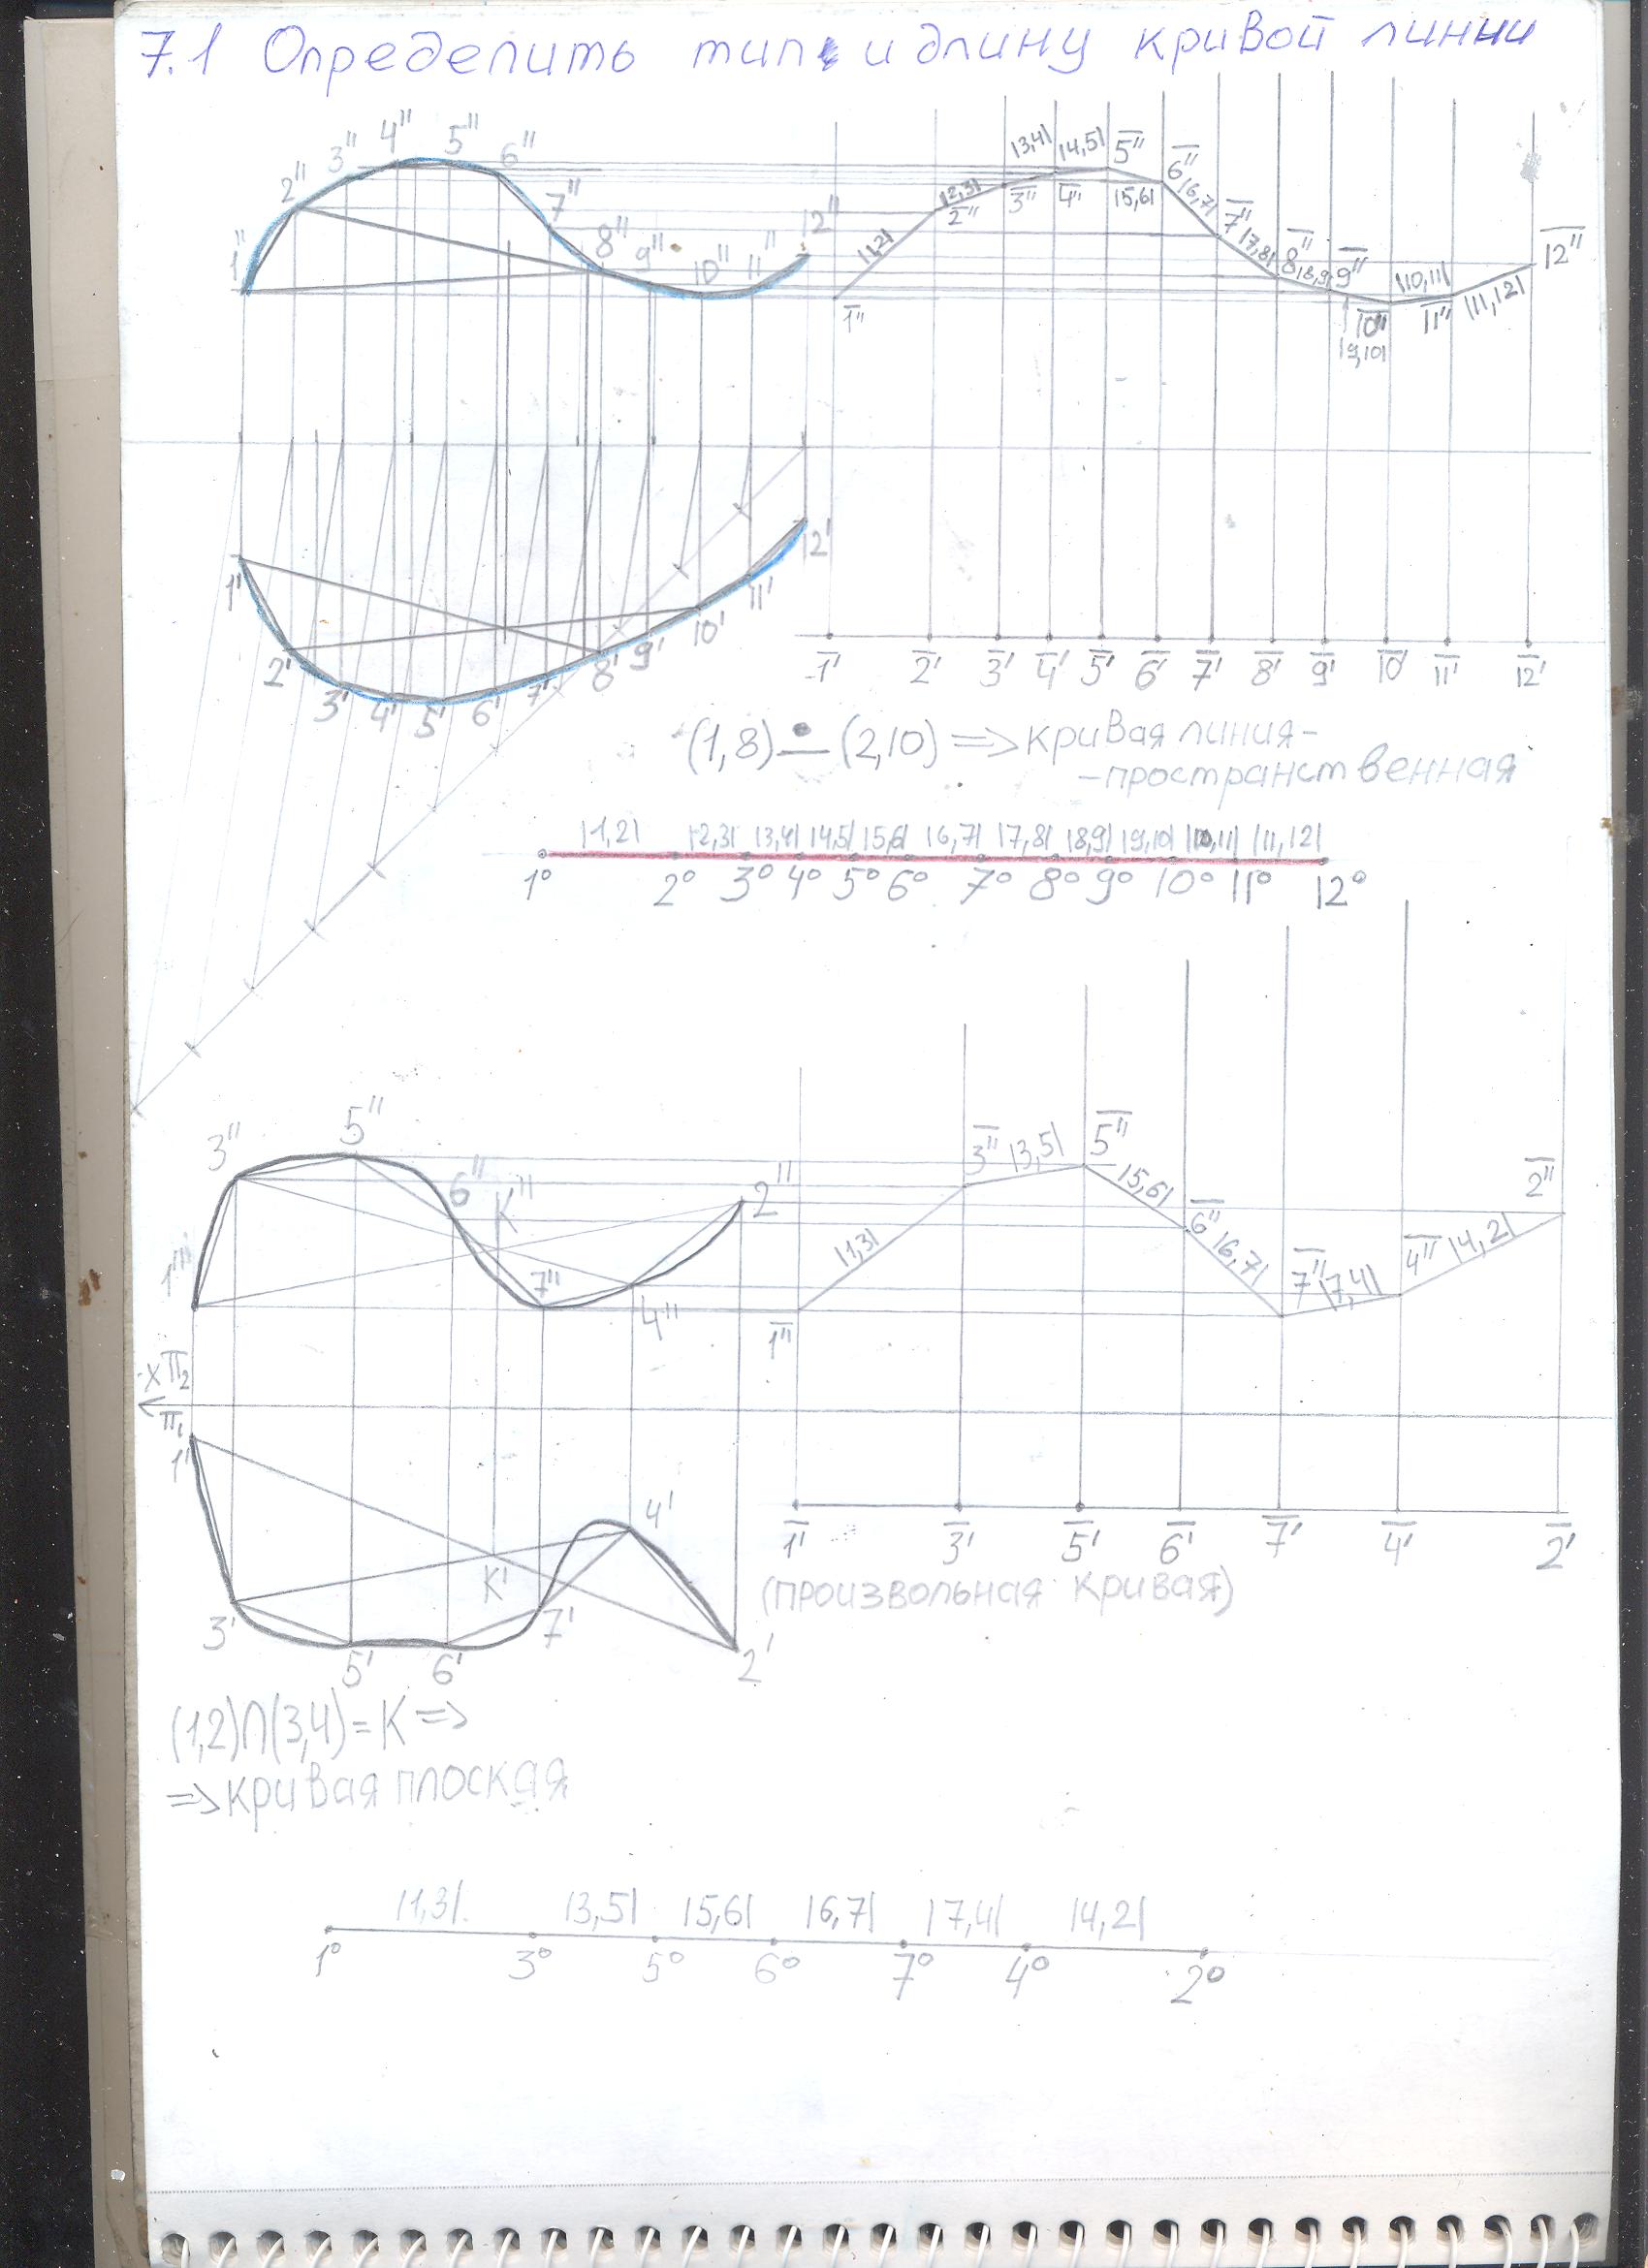 7.1 Определить тип и длину кривой линии
1'' 2'' 3'' 4'' 5'' 6'' 7'' 8'' 9'' 10'' 11'' 12''
|3,4| |4,5| 5̅'' 6̅''
|1,2| |2,3| 2̅'' 3̅'' 4̅'' |5,6| |6,7| 7̅'' |7,8| 8̅'' |8,9| 9̅'' |10,11| 12̅''
1̅'' 10̅'' 11̅'' |11,12|
|9,10|
1' 2' 3' 4' 5' 6' 7' 8' 9' 10' 11' 12'
1̅' 2̅' 3̅' 4̅' 5̅' 6̅' 7̅' 8̅' 9̅' 10̅' 11̅' 12̅'
(1,8) ∸ (2,10) => кривая линия-
-пространственная
|1,2| |2,3| |3,4| |4,5| |5,6| |6,7| |7,8| |8,9| |9,10| |10,11| |11,12|
1° 2° 3° 4° 5° 6° 7° 8° 9° 10° 11° 12°
3'' 5'' 6'' K'' 2''
1'' 7'' 4''
3̅'' |3,5| 5̅'' |5,6| 2̅''
|1,3| 6̅'' |6,7| 7̅'' |7,4| 4̅'' |4,2|
1̅''
x π₂
π₁
1' 3' 5' 6' K' 7' 4' 2'
1̅' 3̅' 5̅' 6̅' 7̅' 4̅' 2̅'
(произвольная кривая)
(1,2)∩(3,4)=K =>
=> кривая плоская
|1,3| |3,5| |5,6| |6,7| |7,4| |4,2|
1° 3° 5° 6° 7° 4° 2°